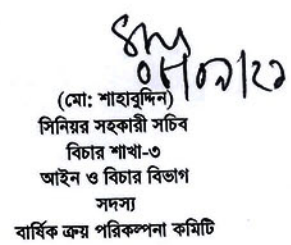 (মো: শাহাবুদ্দিন)
সিনিয়র সহকারী সচিব
বিচার শাখা-৩
আইন ও বিচার বিভাগ
সদস্য
বার্ষিক ক্রয় পরিকল্পনা কমিটি